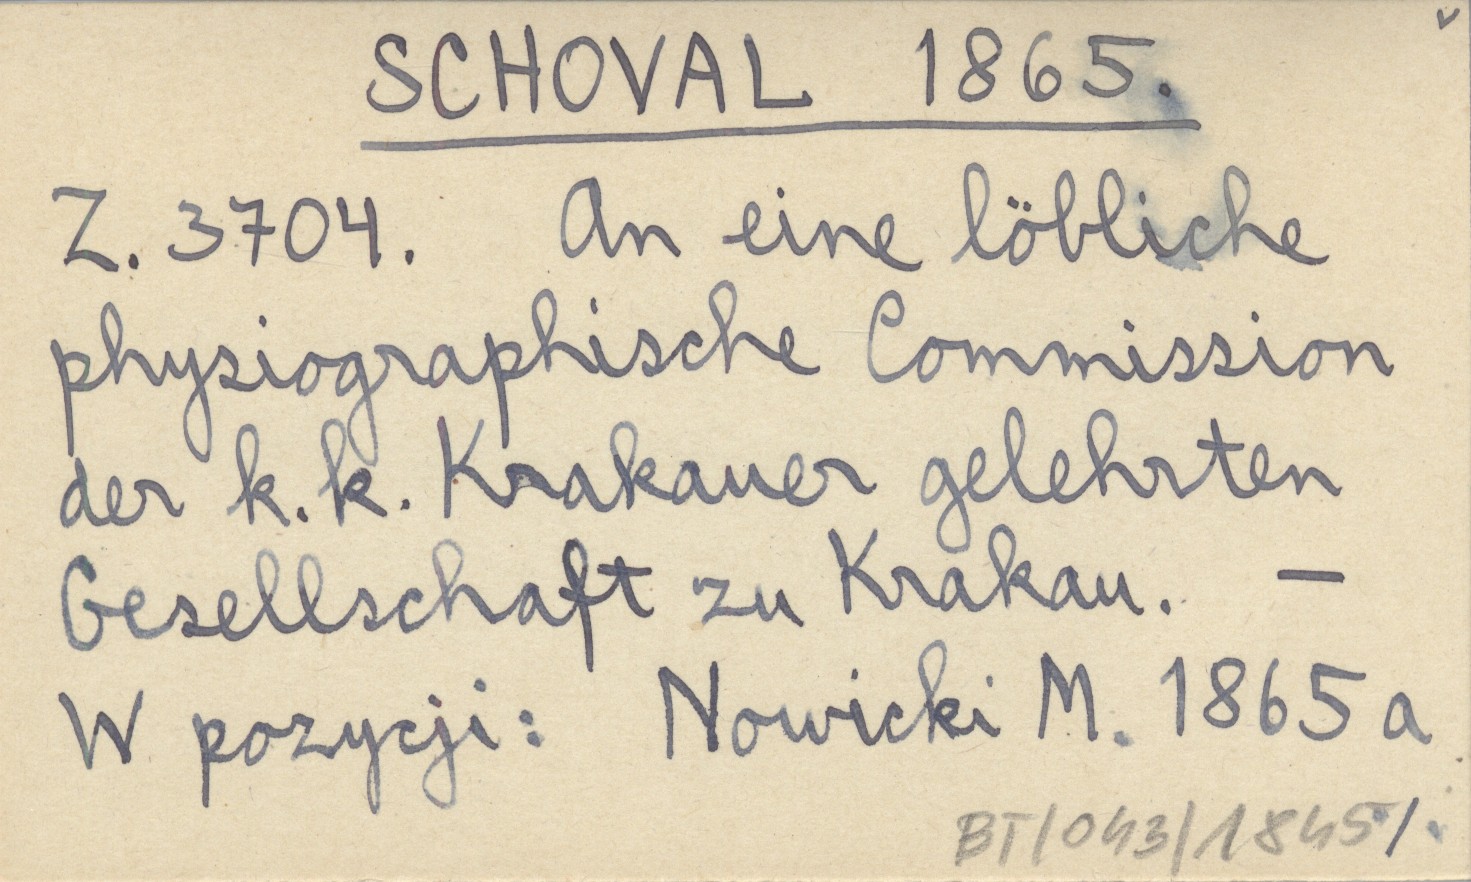 SCHOVAL 1865.
Z. 3704. An eine löbliche
physiographische Commission
der k.k. Krakauer gelehrten
Gesellschaft zu Krakau. —
W pozycji: Nowicki M. 1865 a
BT/043/1845/.